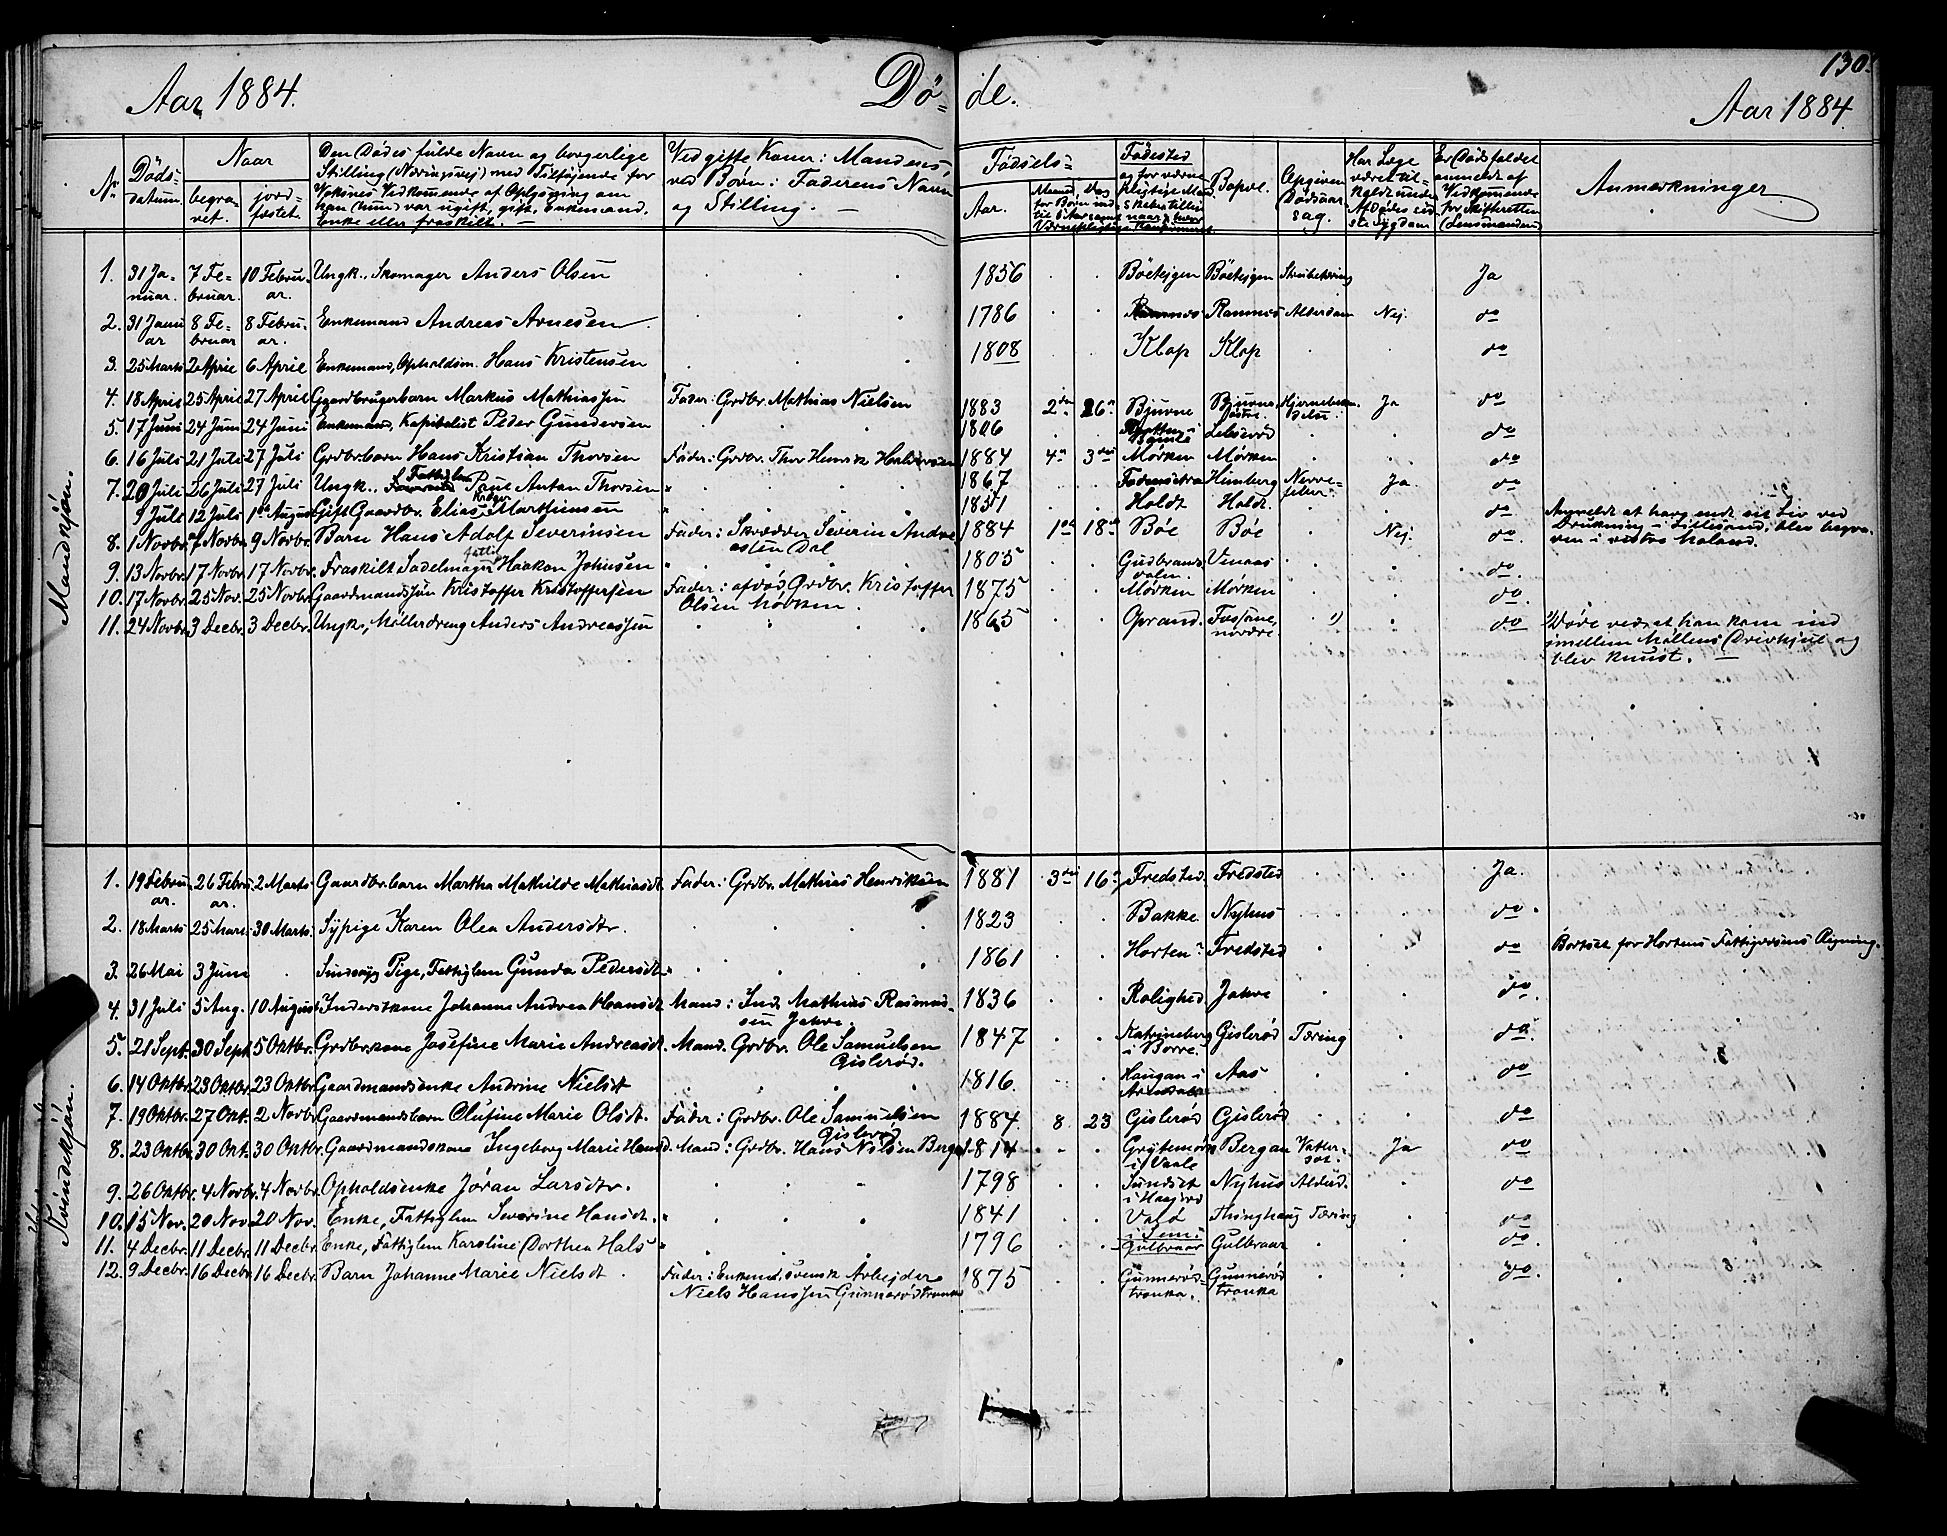 130.
Aar 1884. Dø- de. Aar 1884.
Nr. Døds-datum. Naar begra-vet. jord-fæstet.
Den Dødes fulde Navn og borgerlige
Stilling (Næringsvej) med Tilføjende for
Voksnes Vedkommende af Oplysning om
han (hun) var ugift, gift, Enkemand,
Enke eller fraskilt. —
Ved gifte Koner: Mandens,
ved Børn: Faderens Navn
og Stilling. —
Fødsels- Aar.
Fødested
Bopæl.
Opgiven Dødsaarsag.
Har Læge været til-
Er Dødsfaldet anmeldt af Vedkommende for Skifteretten (Lensmanden)
Anmærkninger
Mandkjøn.
1. 31 Januar. 7 Februar. 10 Februar. Ungk., Skomager Anders Olsen 1856 Bøeteigen Bøeteigen Ja
2. 31 Januar 8 Februar 8 Februar. Enkemand Andreas Arnesen 1786 Ramnes Ramnes Alderdom Nej. do
3. 25 Marts 2 April 6 April Enkemand, Opholdsm. Hans Kristensen 1808 Klop Klop do
4. 18 April 25 April 27 April Gaardbrugerbarn Markus Mathiassen Fader: Grdbr. Mathias Nielsen 1883 2den 26n Bjuvne Bjuvne Ja do
5. 17 Juni 24 Juni 24 Juni Enkemand, Kapitalist Peder Gundersen 1806 do
6. 16 Juli 21 Juli 27 Juli Grdbr.barn Hans Kristian Thorsen Fader: Grdbr. Thor Henrik Halvorsen 1884 4n 3die Mørken Mørken do
7. 20 Juli 26 Juli 27 Juli Ungk., Fattiglem Paul Anton Thorsen 1867 Himberg Nervefeber Ja. do
9 Juli 12 Juli 1ste August Gift Gaardbr. Elias Martinsen Holdt Holdt do Anmeldt at have endt sit Liv ved
Drukning i Lillesand; blev begra-
ven i vestre Moland.
8. 1 Novbr. 7 Novbr. 9 Novbr. Barn Hans Adolf Severinsen Fader: Skrædder Severin Andre-
asen Dal 1884 1ste 18de Bøe Bøe Nej. do.
9. 13 Novbr. 17 Novbr. 17 Novbr. Fraskilt Sadelmager Haakon Johnsen 1805 Gudbrands-
dalen. Vinaas do.
10. 17 Novbr. 25 Nov. 25 Novbr. Gaardmandssøn Kristoffer Kristoffersen Fader: afdød Grdbr. Kristoffer
Olsen Mørken. 1875 Mørken Mørken do.
11. 24 Novbr. 3 Decbr. 3 Decbr. Ungk., Møllerdreng Anders Andreassen 1865 Oprand. Fossane,
nordre. do. Døde ved at han kom ind
imellem Møllens Drivhjul og
blev knust. —
Kvindekjøn.
1. 19 Februar. 26 Februar. 2 Marts. Gaardbr.barn Martha Mathilde Mathiasdt. Fader: Grdbr. Mathias Henriksen 1881 3die 16n Fredsted. Fredsted Ja.
2. 18 Marts 25 Marts 30 Marts. Sypige Karen Olea Andersdtr. 1823 Bakke. Nyhus do.
3. 26 Mai 3 Juni Sindssyg Pige, Fattiglem Gunda Pedersdt. 1861 Horten. Fredsted do Bortsat for Hortens Fattigvæsens Regning.
4. 31 Juli 5 Aug. 10 August Inderstkone Johanne Andrea Hansdt. Mand: Ind. Mathias Rasmus-
sen Jahre. 1836 Rolighed Jahre do.
5. 21 Sept. 30 Sept. 5 Oktbr. Grdbr.kone Josefine Marie Andreasdt. Mand: Grdbr. Ole Samuelsen
Gislerød. 1847 Katrineberg
i Borre. Gislerød Tæring do.
6. 14 Oktbr. 23 Oktbr. 23 Oktbr. Gaardmandsenke Andrine Nielsdt 1816. Haugan i
Arendal Aas do
7. 19 Oktbr. 27 Okt. 2 Novbr. Gaardmandsbarn Olufine Marie Olsdt. Fader: Grdbr. Ole Samuelsen
Gislerød 1884. 8. 23 Gislerød Gislerød do
8. 23 Oktbr. 30 Okt. 30 Oktbr. Gaardmandskone Ingeborg Marie Hansd. Mand: Grdbr. Hans Nilsen Bergan 1814 i Vaale Bergan Vatter-
sot. Ja do
9. 26 Oktbr. 4 Novbr. 4 Novbr. Opholdsenke Jøran Larsdtr. 1798 Sundset Nyhus Aldrd. do
10. 15 Nov. 20 Nov. 20 Nov. Enke, Fattiglem Severine Hansdt. 1841 Valø
i Sem. Thinghaug Tæring do
11. 4 Decbr. 11 Decbr. 11 Decbr. Enke, Fattiglem Karoline Dorthea Hals 1796 Gulbraar Gulbraar do.
12. 9 Decbr. 16 Decbr. 16 Decbr. Barn Johanne Marie Nielsdt. Fader: Enkemd. svensk Arbejder
Niels Hanssen Gunnerødtranka 1875 Gunnerød-
tranka. Gunnerød
tranka do.